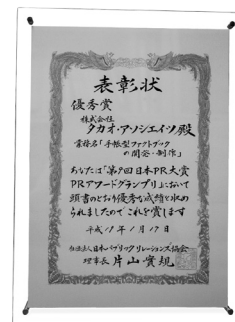 表彰状
優秀賞
株式会社
タカオ・アソシエイツ殿
業務名「手帳型ファクトブック
の開発・制作」
あなたは「第9回日本PR大賞
PRアワードグランプリ」において
頭書のとおり優秀な成績を収め
られましたのでこれを賞します
平成19年1月17日
社団法人日本パブリックリレーションズ協会
理事長 片山實規